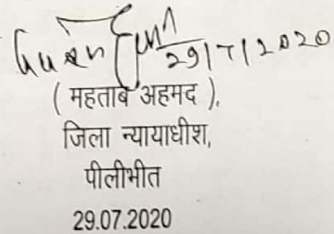 29/7/2020
( महताब अहमद ),
जिला न्यायाधीश,
पीलीभीत
29.07.2020